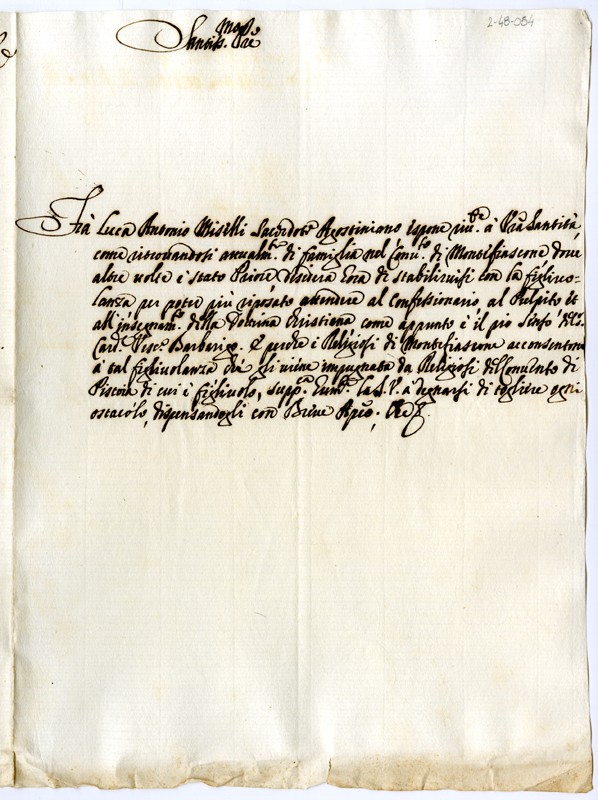 2-48-054
Santiss.mo P.re
Frà Luca Antonio Miselli Sacerdote Agostiniano espone um.te à V.ra Santità
come ritrovandosi attualm.te di famiglia nel Conu.to di Montefiascone doue
altre uolte è stato Priore desidera hora di stabiliruisi con la figliuo-
lanza per poter più riposato attendere al Confessionario, al Pulpito et
all'insegnam.to della Dottrina Cristiana come appunto è il pio
Card. Vesc.o Barbarigo. E perche i Religiosi di Montefiascone acconsentono
à tal figliuolanza che gli uiene impugnata da Religiosi del Conuento di
di cui è figliuolo, supp.ca um.te la S. V. à degnarsi di togliere ogni
ostacolo, dispensandogli con Breue Ap.co. Che